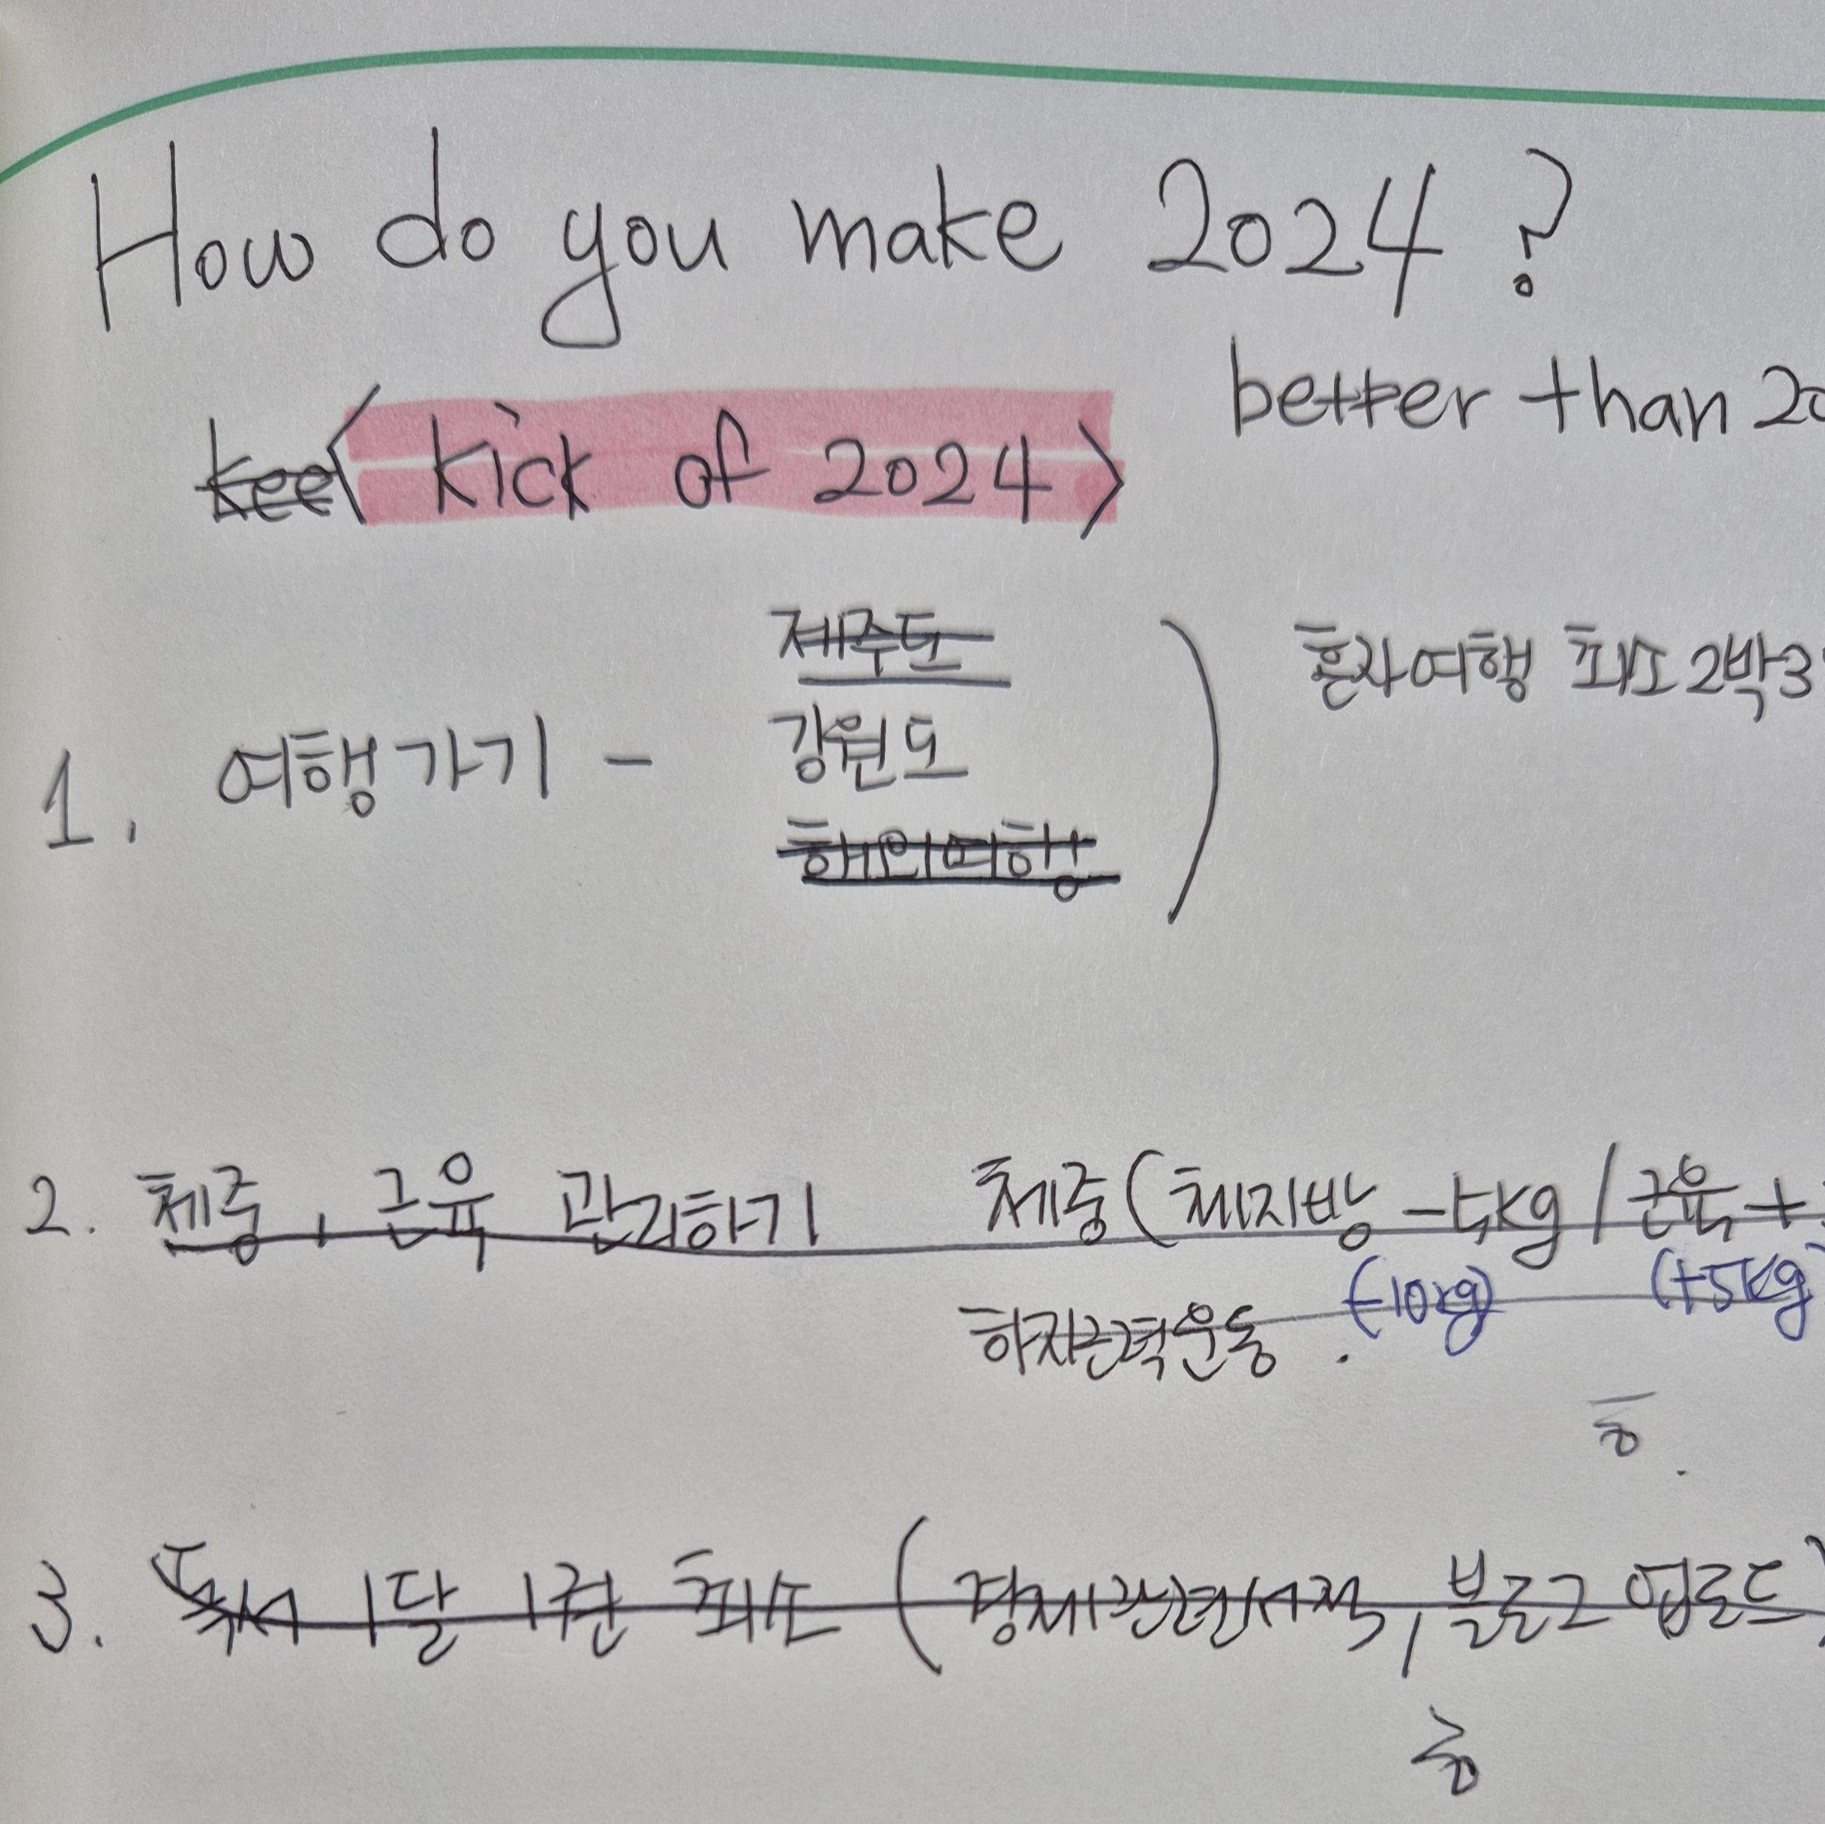 How do you make 2024?
better than 20
kee< kick of 2024>
제주도
1. 여행가기 - 강원도
해외여행
혼자여행 최소 2박3
2. 체중, 근육 관리하기 체중(체지방 -5kg / 근육+
(-10kg) (+5kg
하지근력운동.
3. 독서 1달 1권 최소 (경제관련서적, 블로그 업로드)